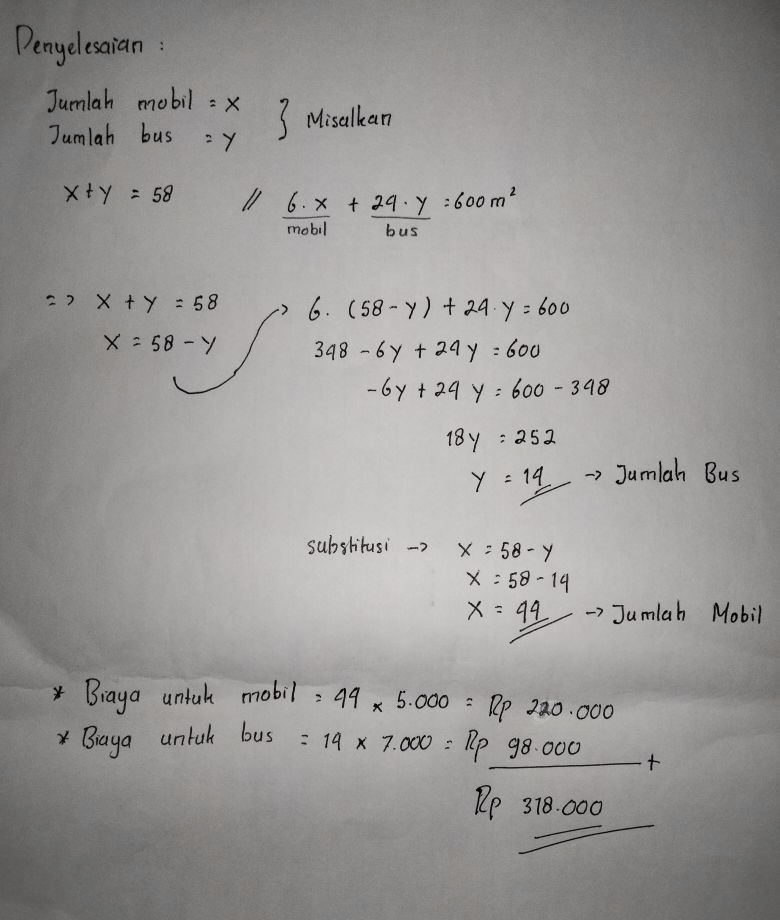 Penyelesaian :
Jumlah mobil = x
Jumlah bus = y } Misalkan
x + y = 58 // 6 . x + 24 . y = 600 m²
mobil bus
=> x + y = 58 -> 6 . (58 - y) + 24 . y = 600
x = 58 - y 348 - 6y + 24 y = 600
-6y + 24 y = 600 - 348
18y = 252
y = 14 -> Jumlah Bus
substitusi -> x = 58 - y
x = 58 - 14
x = 44 -> Jumlah Mobil
* Biaya untuk mobil = 44 x 5.000 = Rp 220.000
* Biaya untuk bus = 14 x 7.000 = Rp 98.000 +
Rp 318.000